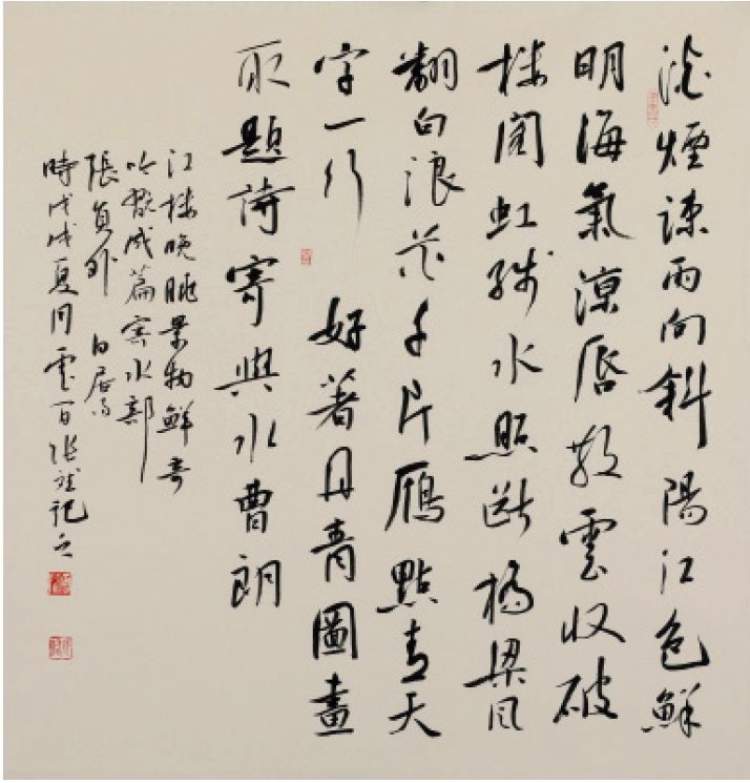 淡煙疎雨間斜陽江色鮮
明海氣涼蜃散雲收破
樓閣虹殘水照斷橋梁風
翻白浪花千片雁點青天
字一行 好著丹青圖畫
取題詩寄與水曹郎
江樓晚眺景物鮮奇
吟翫成篇寄水部
張員外 白居易
時戊戌夏月雲百張記之